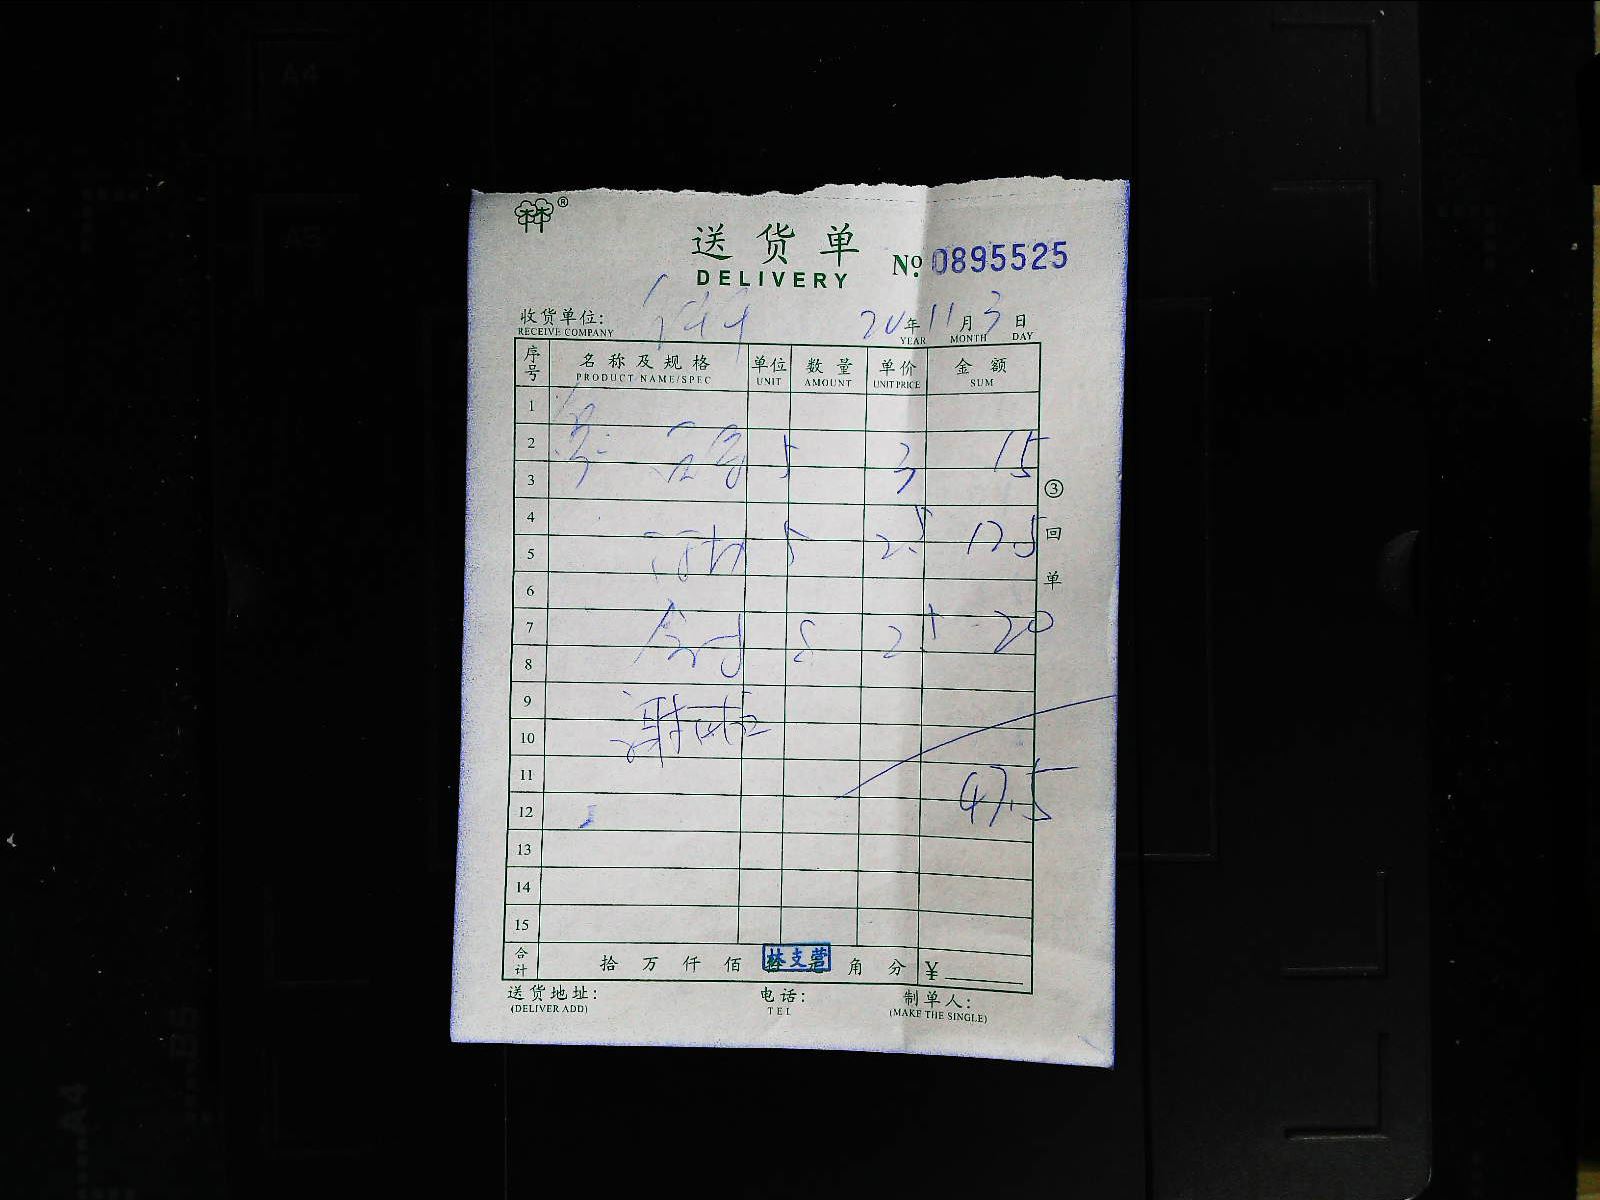 林®
送货单
DELIVERY
No. 0895525
收货单位:
RECEIVE COMPANY
20年11月3日
YEAR MONTH DAY
序号 名称及规格 单位 数量 单价 金额
PRODUCT NAME/SPEC UNIT AMOUNT UNIT PRICE SUM
1
2 5 3 15
3
4
5 5 2.5 12.5
6
7 8 2.5 20
8
9
10
11
47.5
12
13
14
15
③回单
合计 拾 万 仟 佰 角 分 ¥
林支营
送货地址: 电话: 制单人:
(DELIVER ADD) TEL (MAKE THE SINGLE)